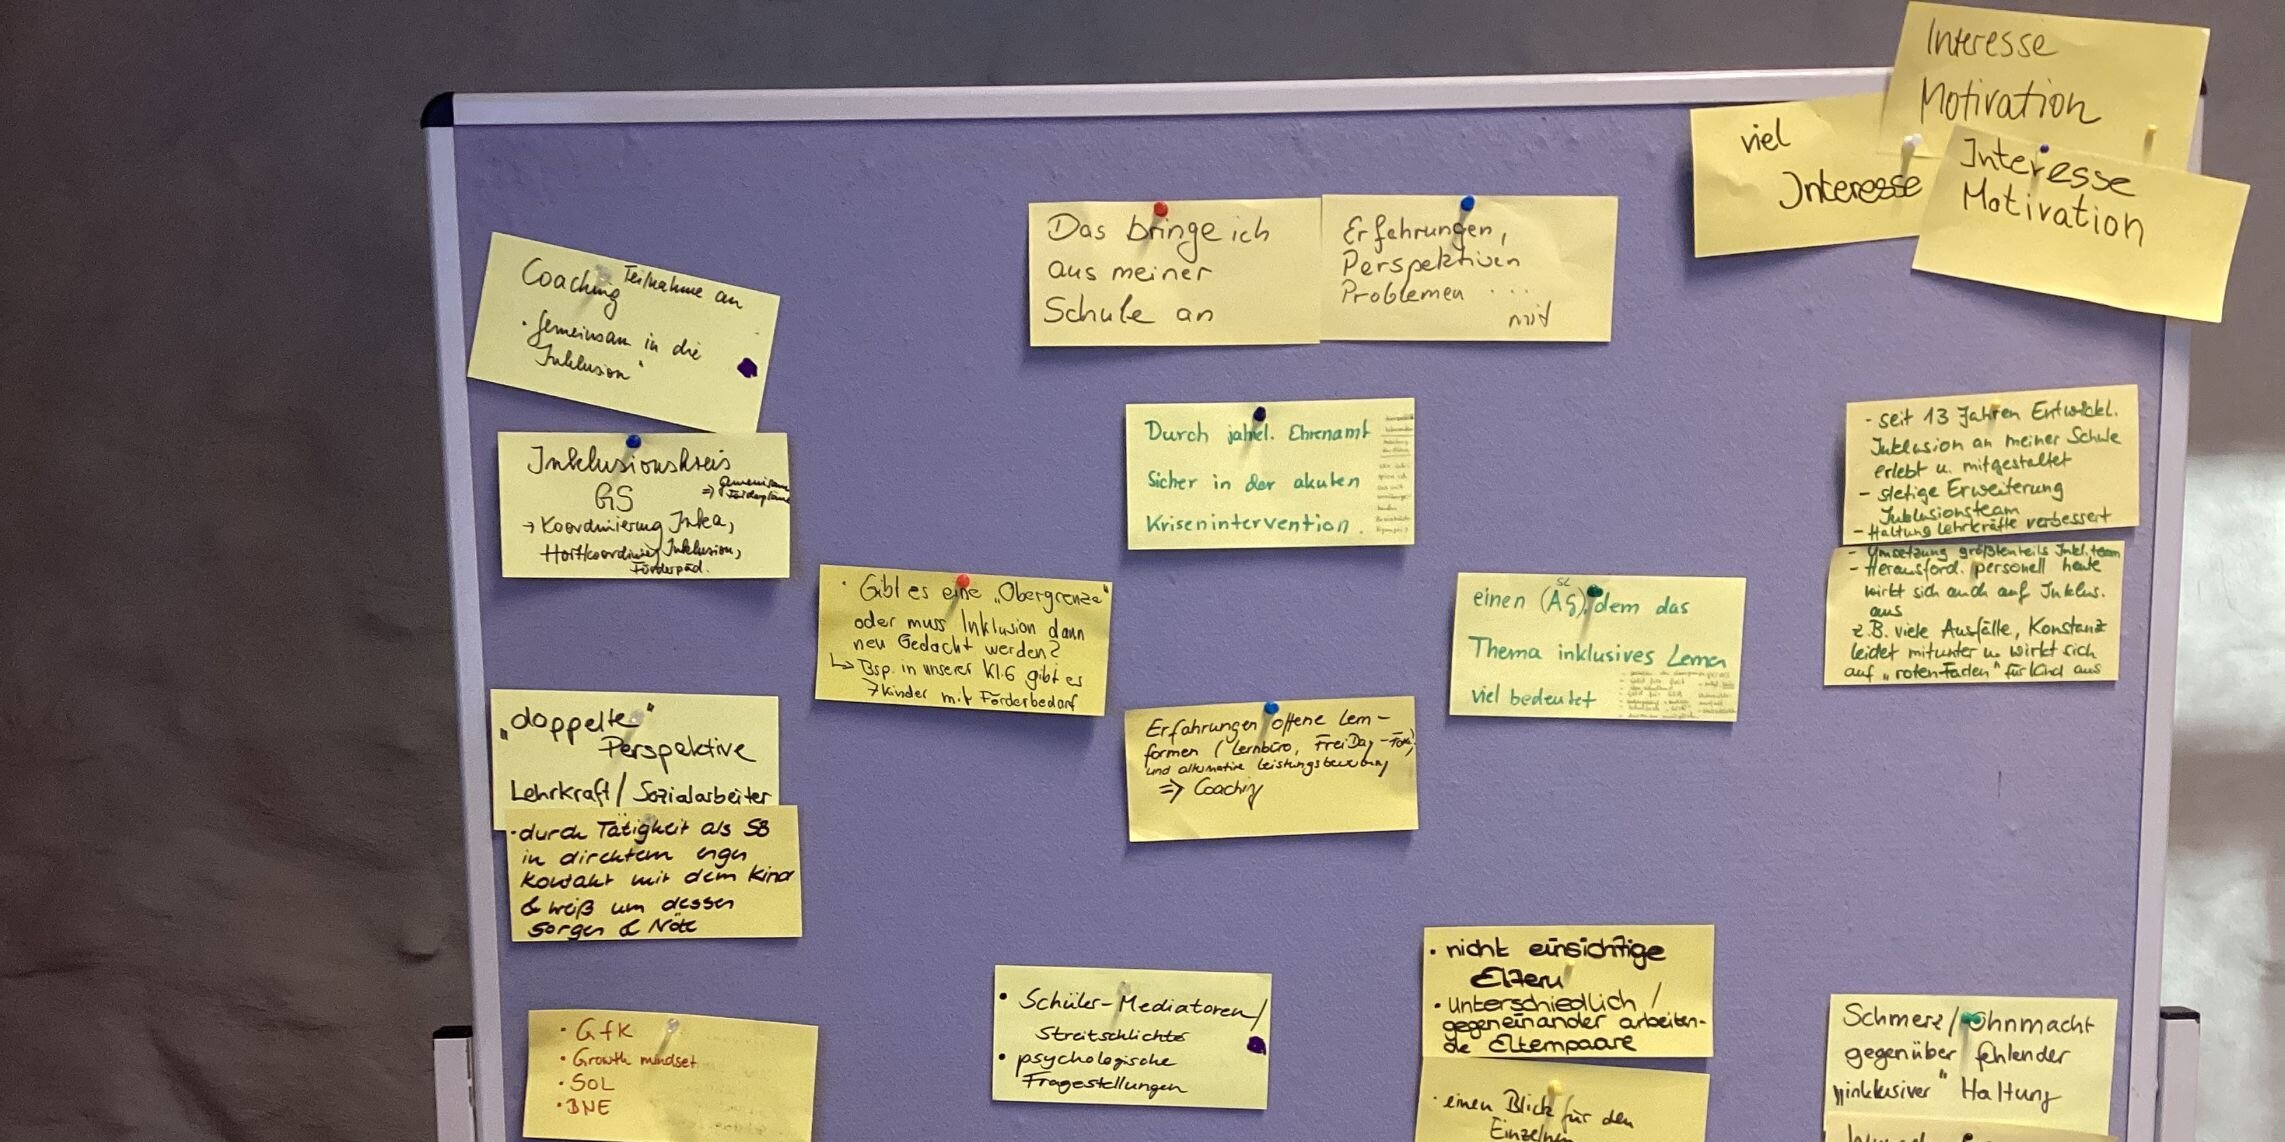 Interesse
Motivation
viel
Interesse
Interesse
Motivation
Das bringe ich
aus meiner
Schule an
Erfahrungen,
Perspektiven
Problemen ...
mit
Coaching Teilnahme an
· gemeinsam in die
Inklusion"
Inklusionskreis
GS
⇒ gemeinsame
Förderpläne
→ Koordinierung Inkea,
Hortkoordinierg Inklusion,
Förderpäd.
Durch jahrel. Ehrenamt
Sicher in der akuten
Krisenintervention.
- seit 13 Jahren Entwickl.
Inklusion an meiner Schule
erlebt u. mitgestaltet
- stetige Erweiterung
Inklusionsteam
- Haltung Lehrkräfte verbessert
- Umsetzung größtenteils Inkl.team
- Herausford. personell heute
wirkt sich auch auf Inklus.
aus
z.B. viele Ausfälle, Konstanz
leidet mitunter u. wirkt sich
auf „roten Faden" für Kind aus
· Gibt es eine „Obergrenze"
oder muss Inklusion dann
neu Gedacht werden?
↳ Bsp. in unserer Kl.6 gibt es
7 Kinder mit Förderbedarf
einen (AG) dem das
SL
Thema inklusives Lernen
viel bedeutet
„doppelte"
Perspektive
Lehrkraft / Sozialarbeiter
Erfahrungen offene Lern-
formen (Lernbüro, FreiDay
und alternative Leistungsbewertung
⇒ Coaching
· durch Tätigkeit als SB
in direktem engen
Kontakt mit dem Kind
& weiß um dessen
Sorgen & Nöte
· nicht einsichtige
Eltern
· unterschiedlich /
gegeneinander arbeiten-
de Elternpaare
• Schüler-Mediatoren/
Streitschlichter
• psychologische
Fragestellungen
Schmerz/Ohnmacht
gegenüber fehlender
„inklusiver" Haltung
· GfK
· Growth mindset
· SOL
· BNE
· einen Blick für den
Einzelnen